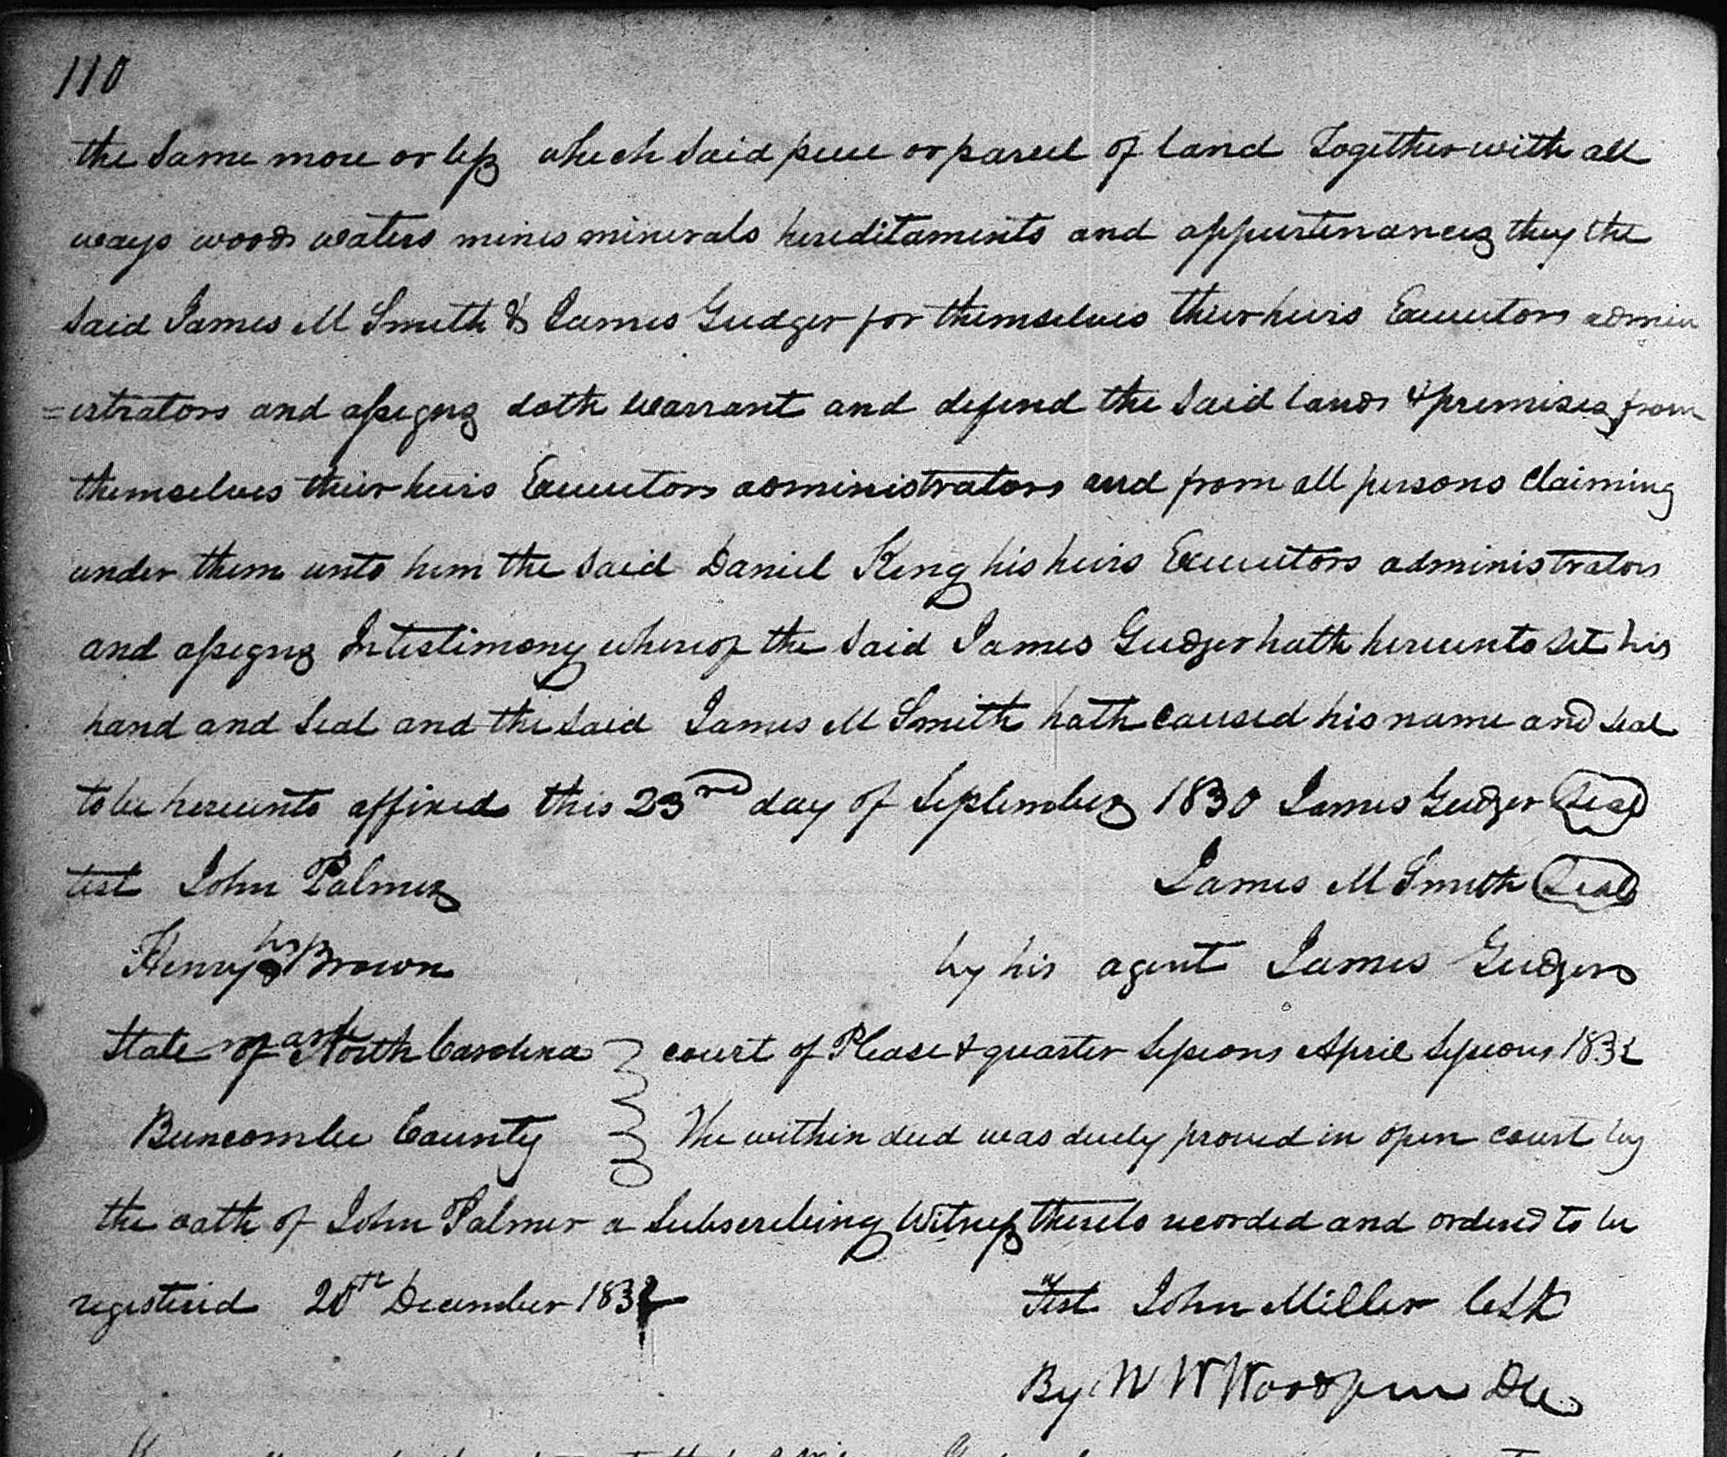 110
the same more or less which said piece or parcel of land Together with all
ways woods waters mines minerals hereditaments and appurtenances they the
said James M Smith & James Gudger for themselves their heirs Executors admin
=istrators and assigns doth warrant and defend the said lands & premises from
themselves their heirs Executors administrators and from all persons claiming
under them unto him the said Daniel King his heirs Executors administrators
and assigns In testimony whereof the said James Gudger hath hereunto set his
hand and seal and the said James M Smith hath caused his name and seal
to be hereunto affixed this 23rd day of September 1830 James Gudger Seal
test John Palmer James M Smith Seal
Henry his Brown by his agent James Gudger
mark
State of North Carolina court of Please & quarter sessions April sessions 1832
Buncombe County The within deed was duely proved in open court by
the oath of John Palmer a subscribing Witness thereto recorded and ordered to be
registered 20th December 1832 Test John Miller Clk
By W W